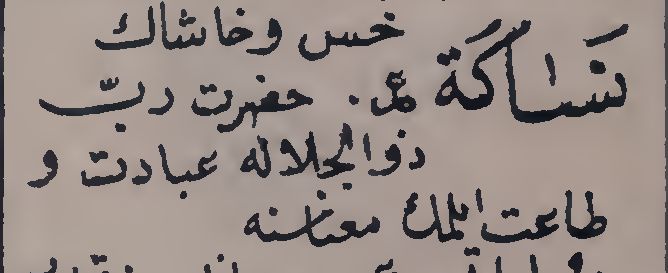 خس وخاشاك
نَسَاكَة مد. حضرت ربّ
ذوالجلاله عبادت و
طاعت ايلمك معناسنه